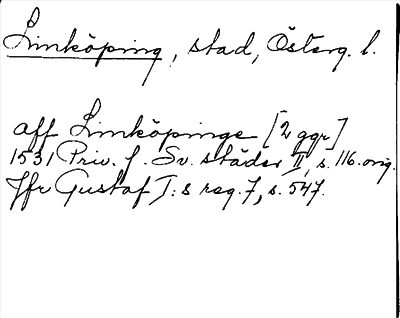 Linköping, stad, Österg. l.
aff Limköpinge [2 ggr]
1531 Priv. f. Sv. städer II, s. 116. orig.
Jfr Gustaf I:s reg. 7, s. 547.